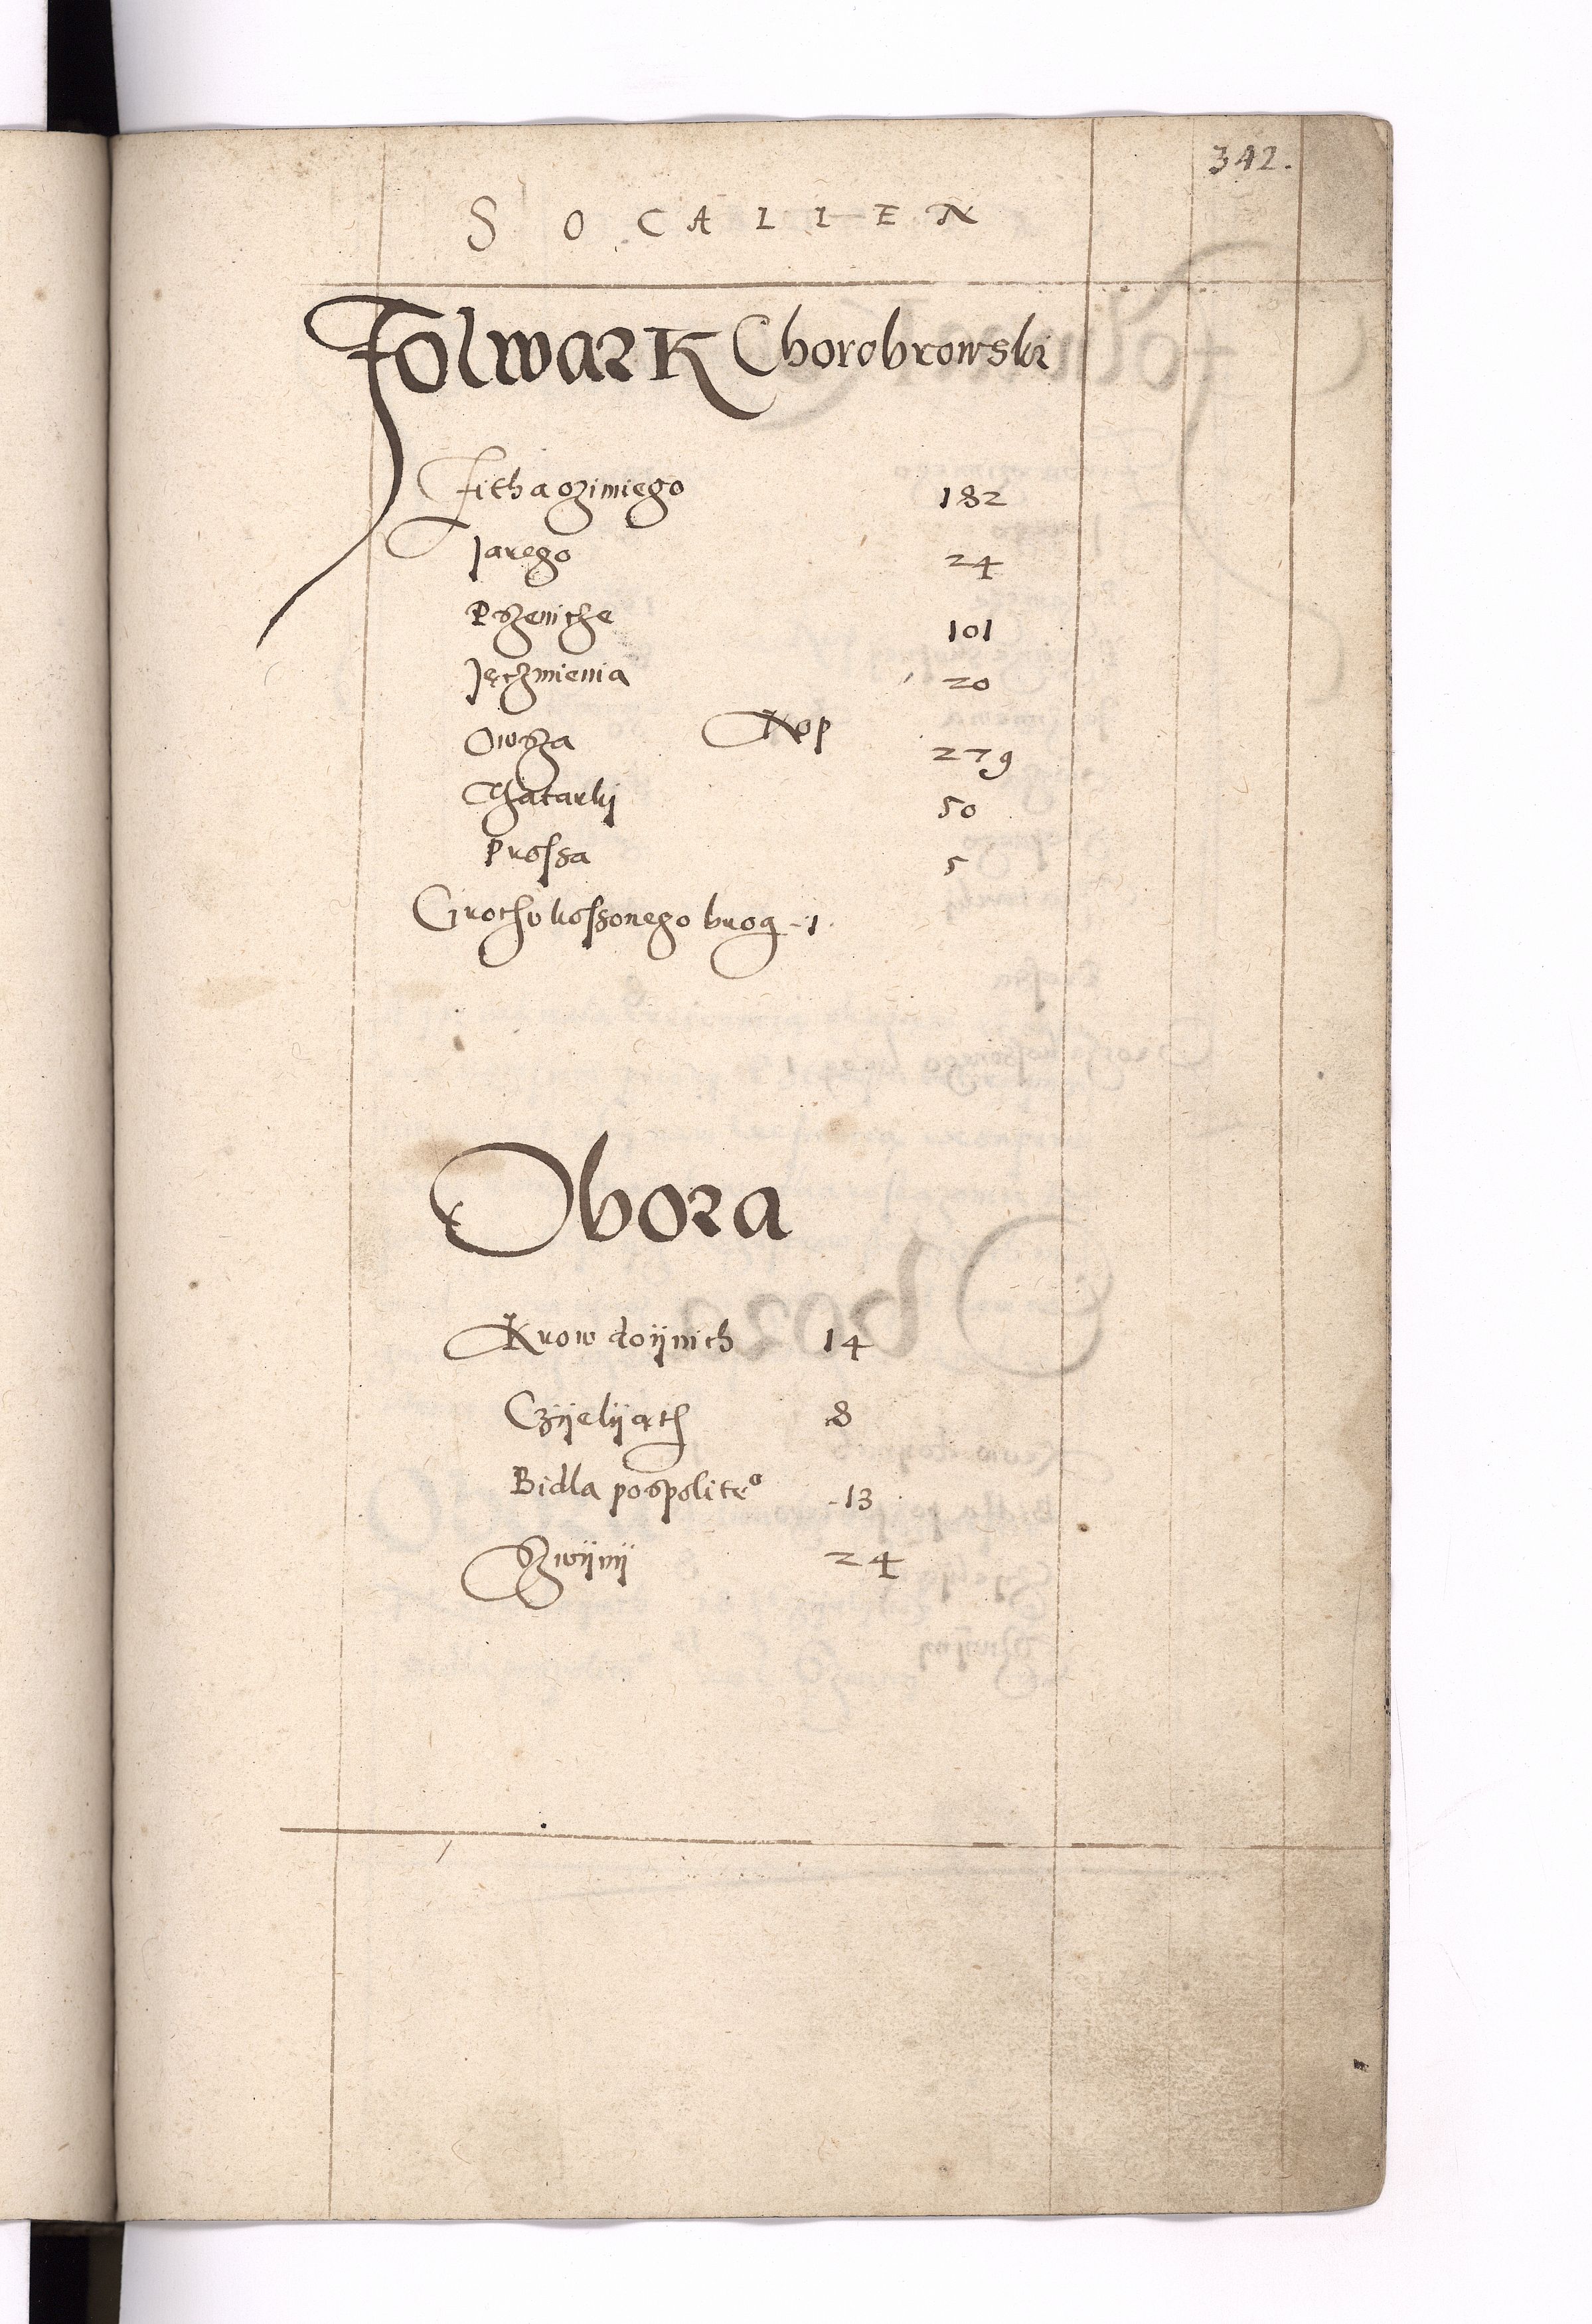 342.
S O C A L I E N
Folwark Chorobrowski
Zitha ozimiego 182
Jarego 24
Pszeniche 101
Jęczmienia 20
Owsza Kop 279
Thatarkij 50
Prossa 5
Grochu kossonego brog 1
Obora
Krow doijnich 14
Czijelijąth 8
Bidla pospoliteo 13
Szwijnij 24